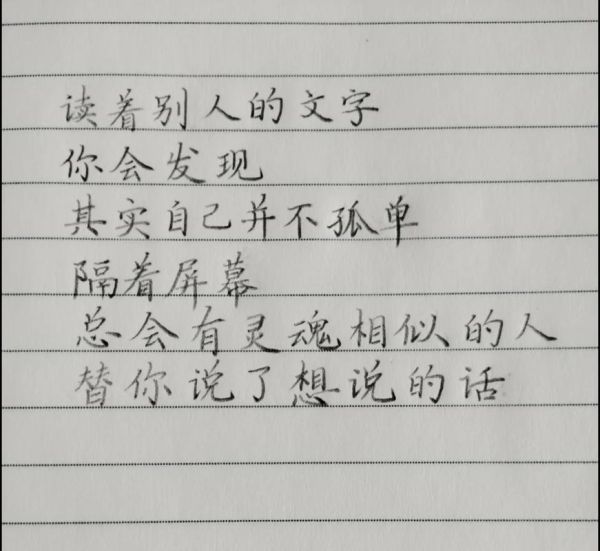 读着别人的文字
你会发现
其实自己并不孤单
隔着屏幕
总会有灵魂相似的人
替你说了想说的话